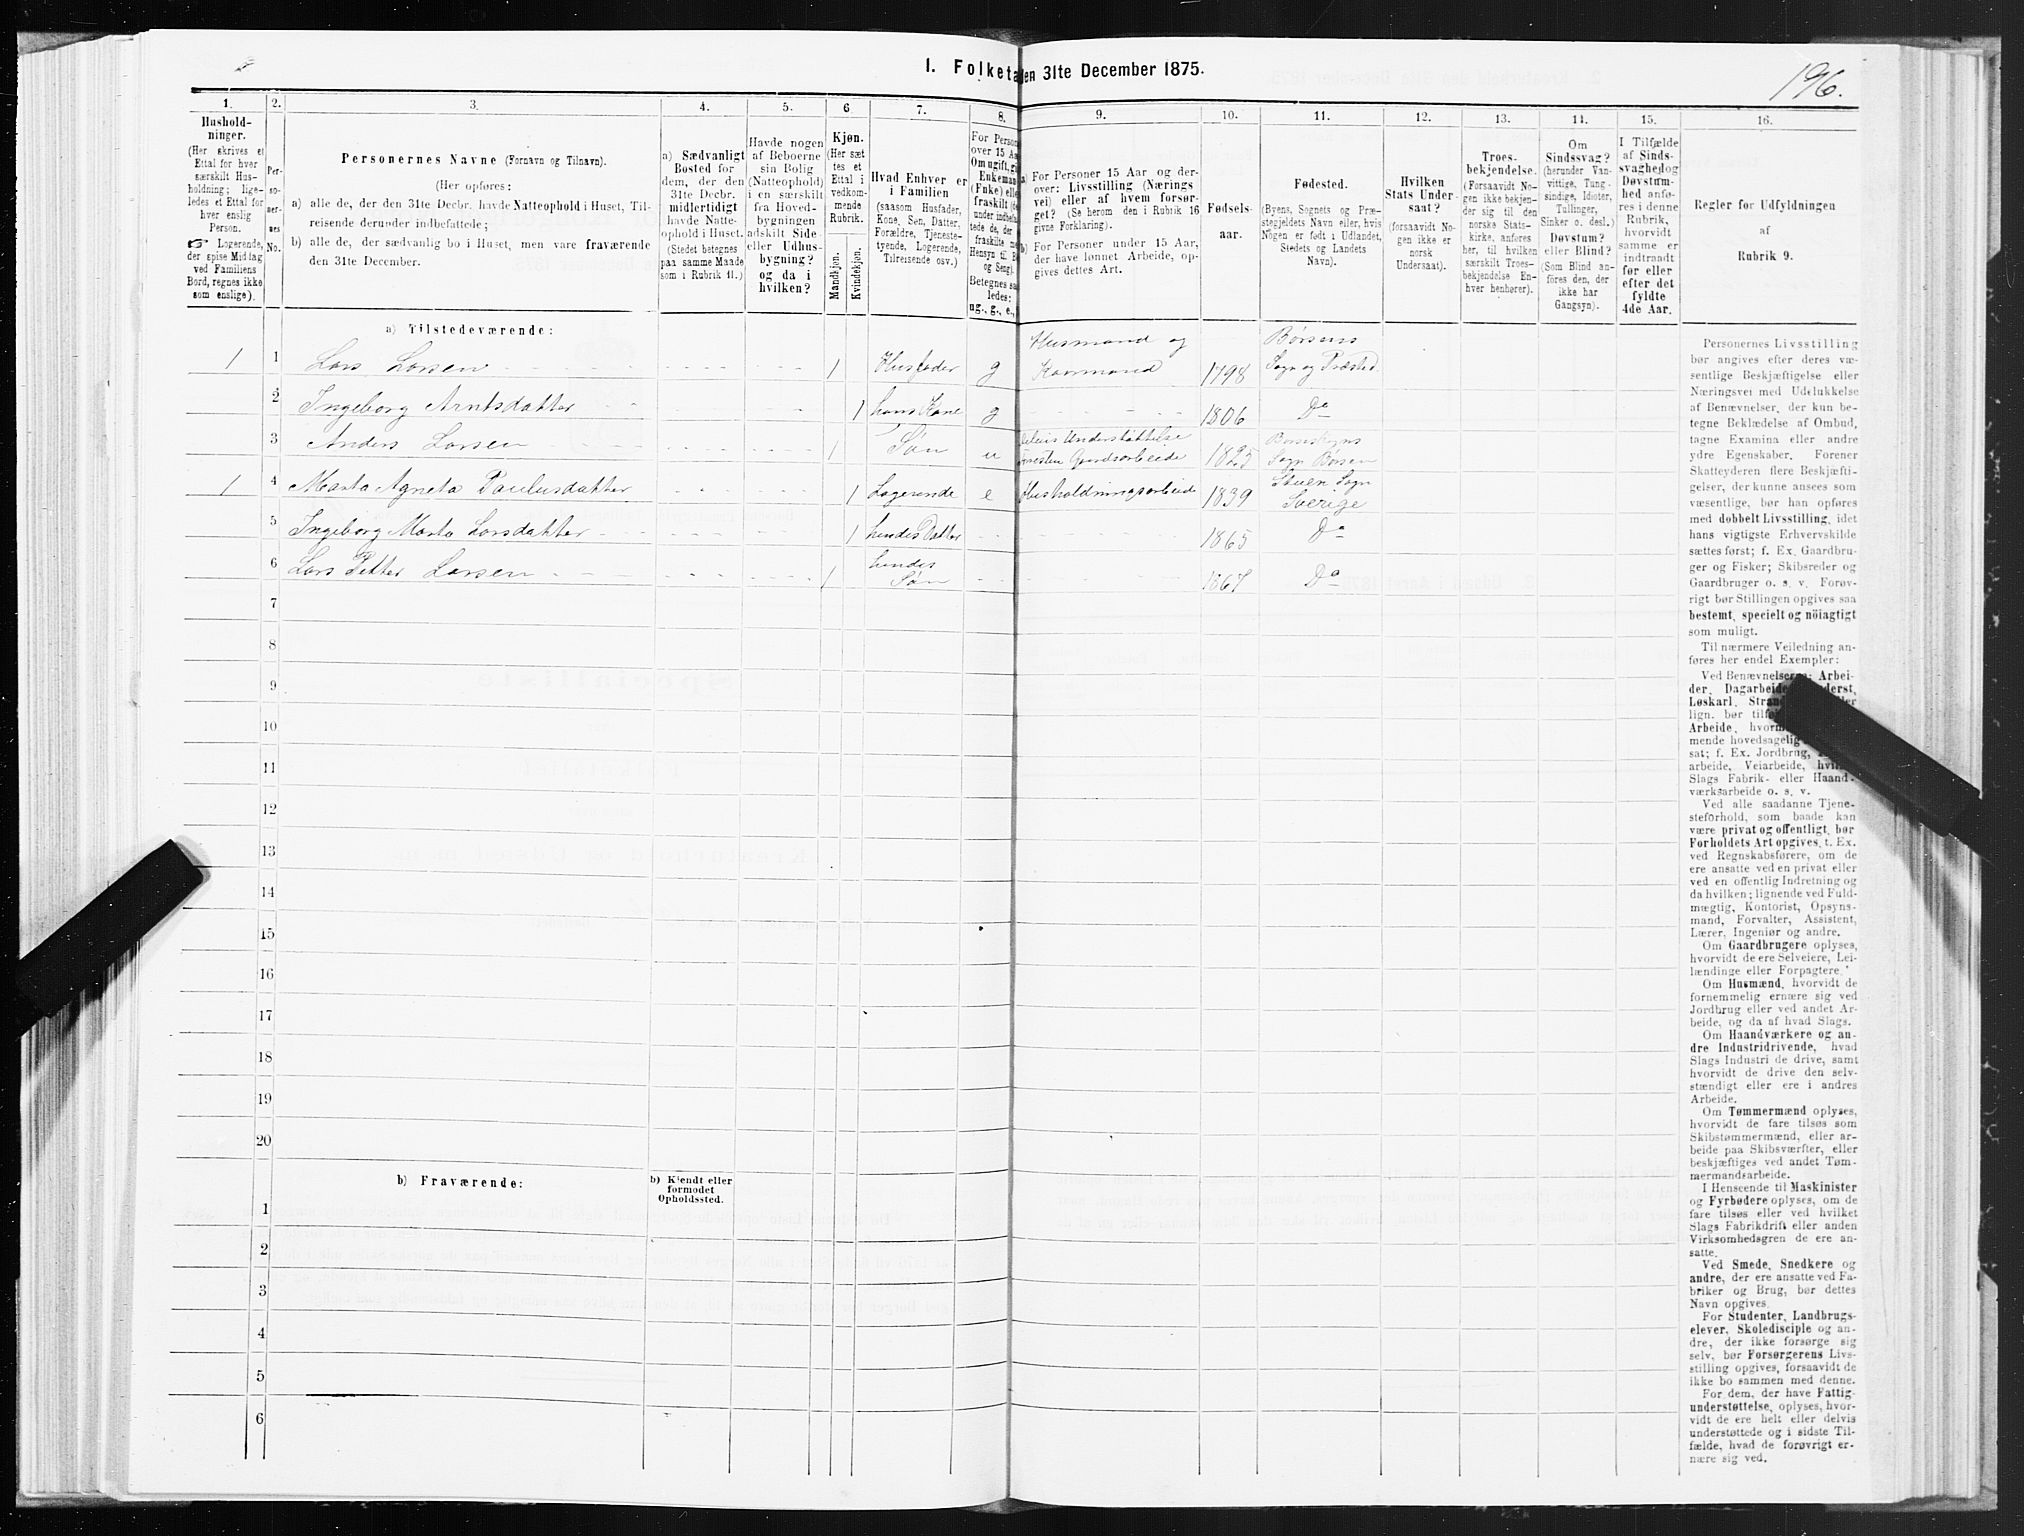 1. Folketa en 31te December 1875.
196.
1.
Hushold-
ninger.
(Her skrives et
Ettal for hver
særskilt Hus-
holdning; lige-
ledes et Ettal for
hver enslig
Person.
Logerende,
der spise Middag
ved Familiens
Bord, regnes ikke
som enslige).
2.
Per-
so-
ner-
nes
No.
3.
Personernes Navne (Fornavn og Tilnavn).
(Her opføres:
a) alle de, der den 31te Decbr. havde Natteophold i Huset, Til-
reisende derunder indbefattede;
b) alle de, der sædvanlig bo i Huset, men vare fraværende
den 31te December.
4.
a) Sædvanligt
Bosted for
dem, der den
31te Decbr.
midlertidigt
havde Natte-
ophold i Huset.
(Stedet betegnes
paa samme Maade
som i Rubrik 11.)
5.
Havde nogen
af Beboerne
sin Bolig
(Natteophold)
i en særskilt
fra Hoved-
bygningen
adskilt Side-
eller Udhus-
bygning?
og da i
hvilken?
6
Kjøn.
(Her sæt-
tes et
Ettal i
vedkom-
mende
Rubrik.
Mandkjøn.
Kvindekjøn.
7.
Hvad Enhver er
i Familien
(saasom Husfader,
Kone, Søn, Datter,
Forældre, Tjeneste-
tyende, Logerende,
Tilreisende osv.)
8.
For Person
over 15 Aa
Om ugift, gi
Enkeman
(Enke) elle
fraskilt (de
under indbefa
tede de, der e
fraskilte m
Hensyn til B
og Seng).
Betegnes sa
ledes:
ug., g., e.,
9.
a) For Personer 15 Aar og der-
over: Livsstilling (Nærings
vei) eller af hvem forsør-
get? (Se herom den i Rubrik 16
givne Forklaring).
b) For Personer under 15 Aar,
der have lønnet Arbeide, op-
gives dettes Art.
10.
Fødsels-
aar.
11.
Fødested.
(Byens, Sognets og Præ-
stegjeldets Navn eller, hvis
Nogen er født i Udlandet,
Stedets og Landets
Navn).
12.
Hvilken
Stats Under-
saat?
(forsaavidt No-
gen ikke er
norsk
Undersaat).
13.
Troes-
bekjendelse.
(Forsaavidt No-
gen ikke bekjen-
der sig til den
norske Stats-
kirke, anføres
her, til hvilken
særskilt Troes-
bekjendelse En-
hver henhører).
14.
Om
Sindssvag?
(herunder Van-
vittige, Tung-
sindige, Idioter,
Tullinger,
Sinker o. desl.)
Døvstum?
eller Blind?
(Som Blind an-
føres den, der
ikke har
Gangsyn).
15.
I Tilfælde
af Sinds-
svaghed og
Døvstum-
hed anfø-
res i denne
Rubrik,
hvorvidt
samme er
indtraadt
før eller
efter det
fyldte
4de Aar.
16.
Regler for Udfyldningen
af
Rubrik 9.
a) Tilstedeværende:
1 1 Lars Larsen 1 Husfader g Husmand og Kaarmand 1798 Børsens Sogn og Præsted
2 Ingeborg Arntsdatter 1 hans Kone g 1806 Do
3 Anders Larsen 1 Søn u Understøttelse 1825 Sogn Børsen
1 4 Marta Agneta Paulusdatter 1 Logerende e Husholdningsarbeide 1839 Sogn Sverige
5 Ingeborg Marta Larsdatter 1 hendes Datter 1865 Do
6 Lars Petter Larsen 1 hendes Søn 1867 Do
7
8
9
10
11
12
13
14
15
16
17
18
19
20
b) Fraværende:
b) Kjendt eller
formodet
Opholdssted.
1
2
3
4
5
6
Personernes Livsstilling
bør angives efter deres væ-
sentlige Beskjæftigelse eller
Næringsvei med Udelukkelse
af Benævnelser, der kun be-
tegne Beklædelse af Ombud,
tagne Examina eller andre
ydre Egenskaber. Forener
Skatteyderen flere Beskjæfti-
gelser, der kunne ansees som
væsentlige, bør han opføres
med dobbelt Livsstilling, idet
hans vigtigste Erhvervskilde
sættes først; f. Ex. Gaardbru-
ger og Fisker; Skibsreder og
Gaardbruger o. s. v. Forøv-
rigt bør Stillingen opgives saa
bestemt, specielt og nöiagtigt
som muligt.
Til nærmere Veiledning an-
føres her endel Exempler:
Ved Benævnelserne: Arbei-
der, Dagarbeide derst,
Løskarl, Stran ller
lign. bør tilf
Arbeide, hvor
mende hovedsagelig
sat; f. Ex. Jordbrug,
arbeide, Veiarbeide, hvil
Slags Fabrik- eller Haand-
værksarbeide o. s. v.
Ved alle saadanne Tjene-
steforhold, som baade kan
være privat og offentligt, bør
Forholdets Art opgives, t. Ex.
ved Regnskabsførere, om de
ere ansatte ved en privat eller
ved en offentlig Indretning og
da hvilken; lignende ved Fuld-
mægtig, Kontorist, Opsyns-
mand, Forvalter, Assistent,
Lærer, Ingeniør og andre.
Om Gaardbrugere oplyses,
hvorvidt de ere Selveiere, Lei-
lændinge eller Forpagtere.
Om Husmænd, hvorvidt de
fornemmelig ernære sig ved
Jordbrug eller ved andet Ar-
beide, og da af hvad Slags.
Om Haandværkere og an-
dre Industridrivende, hvad
Slags Industri de drive, samt
hvorvidt de drive den selv-
stændigt eller ere i andres
Arbeide.
Om Tømmermænd oplyses,
hvorvidt de fare tilsøs som
Skibstømmermænd, eller ar-
beide paa Skibsværfter, eller
beskjæftiges ved andet Tøm-
mermandsarbeide.
I Henseende til Maskinister
og Fyrbødere oplyses, om de
fare tilsøs eller ved hvilket
Slags Fabrikdrift eller anden
Virksomhedsgren de ere an-
satte.
Ved Smede, Snedkere og
andre, der ere ansatte ved Fa-
briker og Brug, bør dettes
Navn opgives.
For Studenter, Landbrugs-
elever, Skoledisciple og an-
dre, der ikke forsørge sig
selv, bør Forsørgerens Livs-
stilling opgives, forsaavidt de
ikke bo sammen med denne.
For dem, der have Fattig-
understøttelse, oplyses, hvor-
vidt de ere helt eller delvis
understøttede og i sidste Til-
fælde, hvad de forøvrigt er-
nære sig ved.